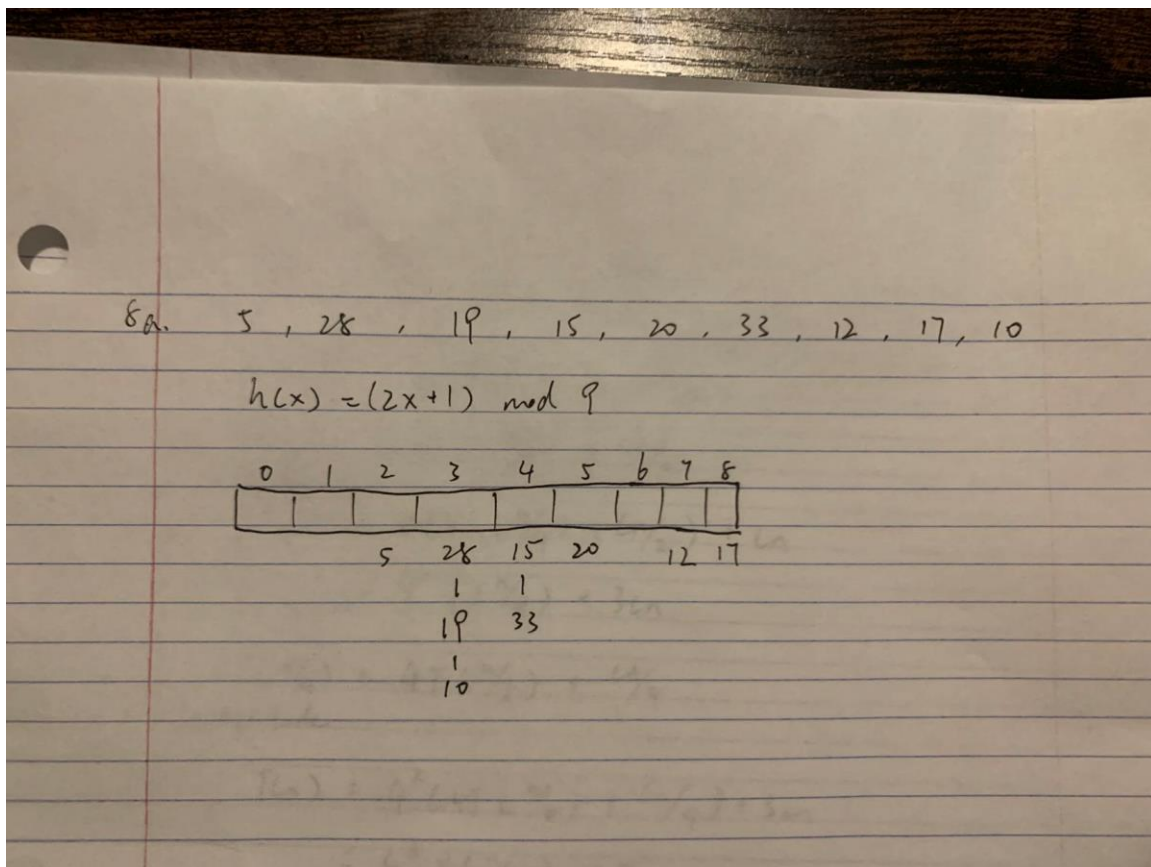 8a. 5, 28, 19, 15, 20, 33, 12, 17, 10
h(x) = (2x+1) mod 9
0 1 2 3 4 5 6 7 8
5 28 15 20 12 17
19 33
10